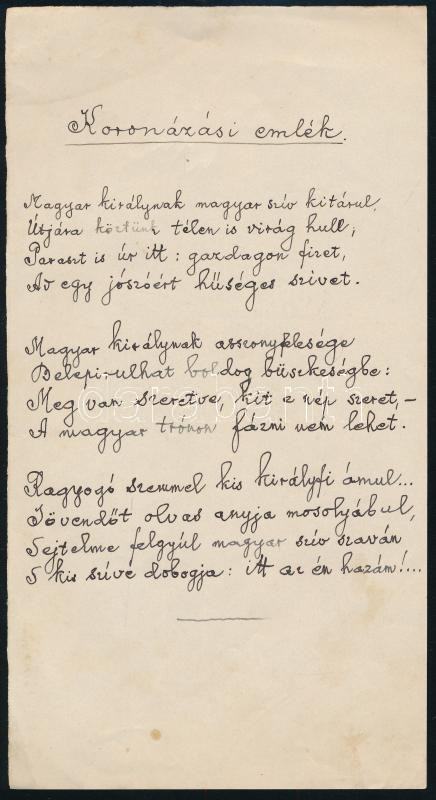 Koronázási emlék.
Magyar királynak magyar szív kitárul,
Útjára köztünk télen is virág hull;
Paraszt is úr itt: gazdagon fizet,
Ad egy jószóért hűséges szivet.
Magyar királynak asszonyfelesége
Belépirulhat boldog büszkeségbe:
Meg van szeretve, kit e nép szeret, –
A magyar trónon fázni nem lehet.
Ragyogó szemmel kis királyfi ámul...
Jövendőt olvas anyja mosolyábul,
Sejtelme felgyúl magyar szív szaván
S kis szívé dobogja: itt az én hazám!...
darabanth